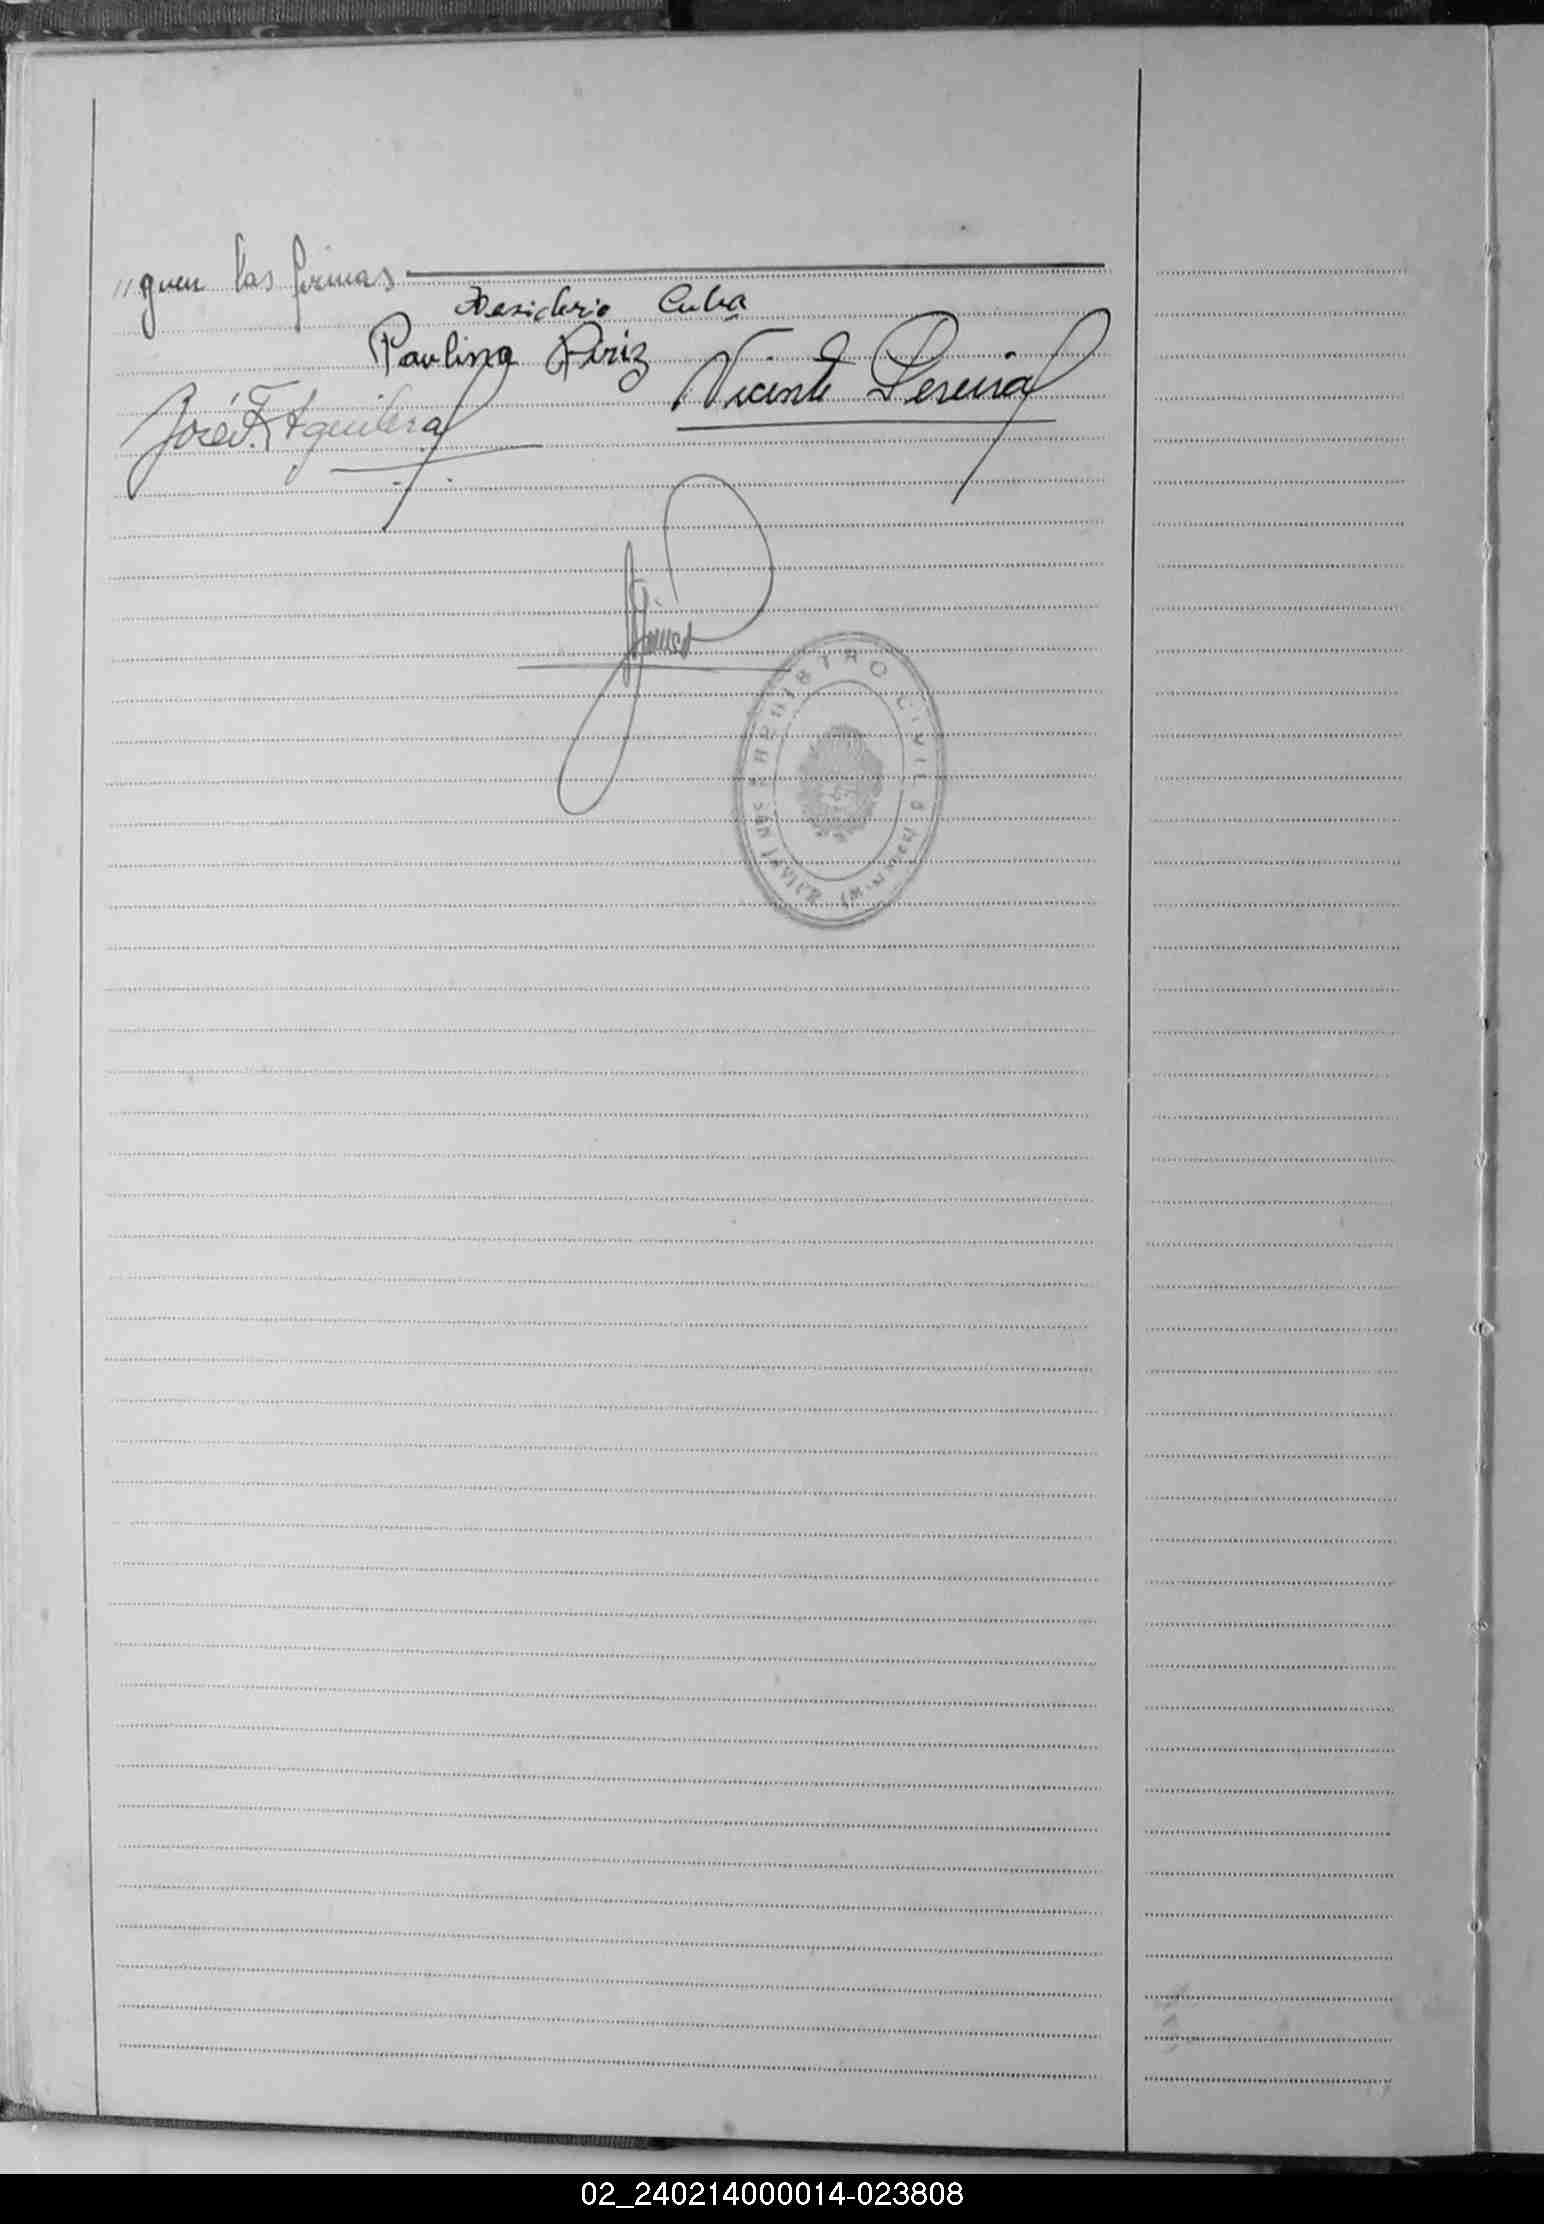 "guen las firmas
Desiderio Cuba
Paulina Piriz Vicente Pereira
José F. Aguilera
REGISTRO CIVIL
02_240214000014-023808